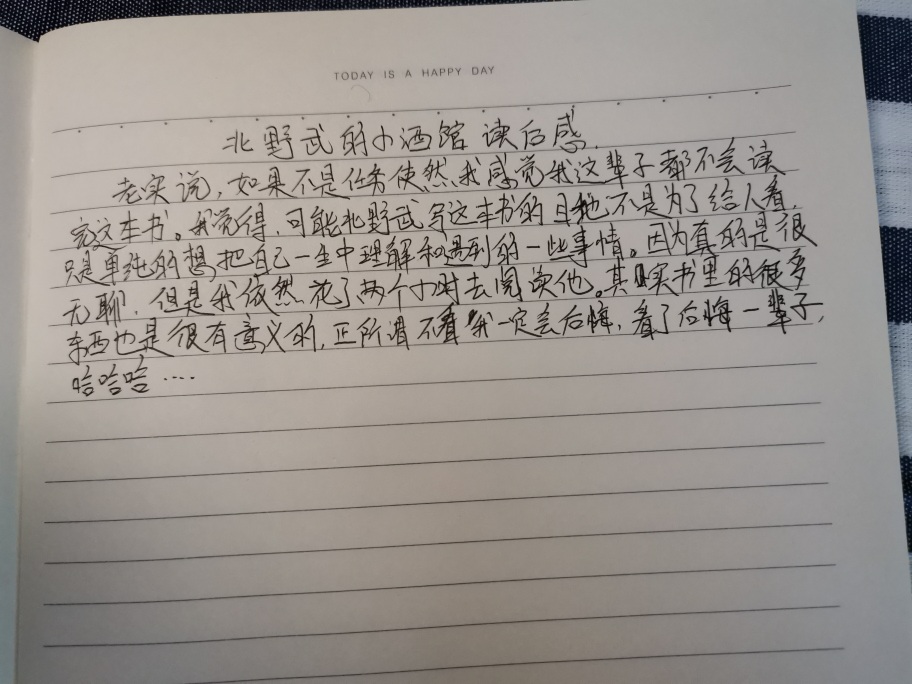 TODAY IS A HAPPY DAY
北野武的小酒馆 读后感.
老实说,如果不是任务使然,我感觉我这辈子都不会读
完这本书。我觉得,可能北野武写这本书的目地不是为了给人看,
只是单纯的想把自己一生中理解和遇到的一些事情。因为真的是很
无聊,但是我依然花了两个小时去阅读他。其实书里的很多
东西也是很有意义的,正所谓不看我一定会后悔,看了后悔一辈子,
哈哈哈....